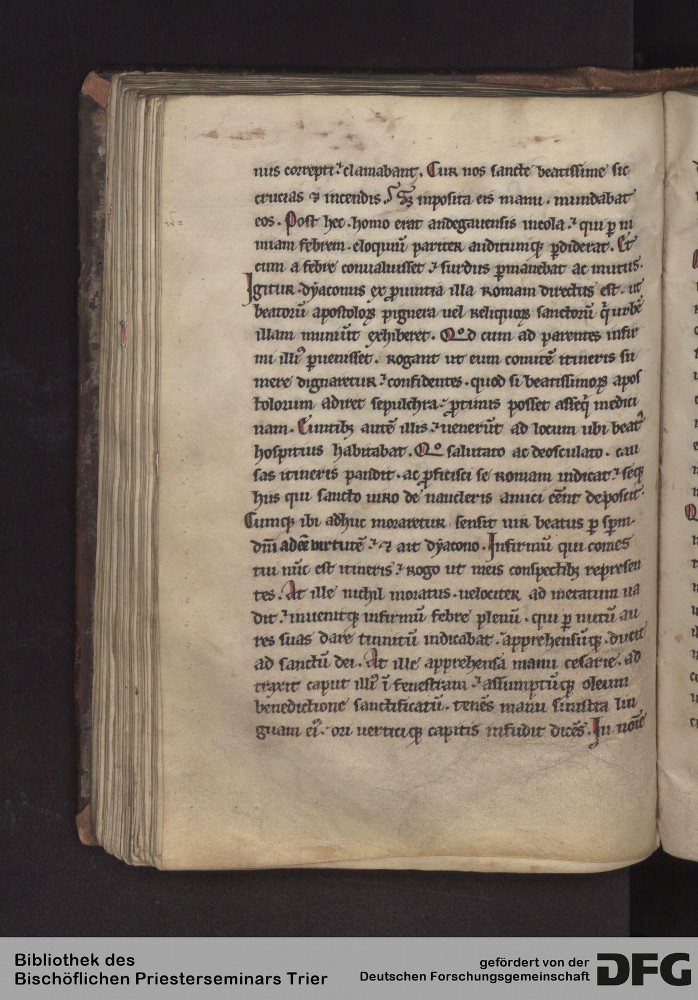 nus correpti. clamabant. Cur nos sancte beatissime sic
crucias ⁊ incendis. Sꝫ imposita eis manu. mundabat
eos. Post hec. homo erat andegauensis incola. qui ꝑ ni
miam febrem. eloquiū pariter auditumqꝫ ꝑdiderat. Et
cum a febre conualuisset. surdus ꝑmanebat ac mutus.
Igitur. dyaconus ex ꝓuintia illa romam directus est. ut
beatorū apostoloꝝ pignera uel reliquoꝝ sanctorū q̄ urbē
illam muniūt exhiberet. Qod cum ad parentes infir
mi illiꝰ ꝑuenisset. rogant ut eum comitē itineris su
mere dignaretur. confidentes. quod si beatissimoꝝ apos
tolorum adiret sepulchra. ꝓtinus posset asseq̄ medici
nam. Euntibꝫ autē illis. uenerūt ad locum ubi beatꝰ
hospitius habitabat. Qo salutato ac deosculato. cau
sas itineris pandit. ac ꝓficisci se romam indicat. seqꝫ
hiis qui sancto uiro de naucleris amici eēnt deposcit.
Cumqꝫ ibi adhuc moraretur sensit uir beatus ꝑ spm̄
dn̄i adeē uirtutē. ⁊ ait dyacono. Infirmū qui comes
tui nūc est itineris. rogo ut meis conspectibꝫ represen
tes. At ille nichil moratus. uelociter ad metatum ua
dit. inuenitqꝫ infirmū febre plenū. qui ꝑ nutū au
res suas dare tinnitū indicabat. apprehensūqꝫ. ducit
ad sanctū dei. At ille apprehensa manu cesarie. ad
traxit caput illiꝰ ī fenestram. assumptūqꝫ oleum
benedictione sanctificatū. tenēs manu sinistra lin
guam eiꝰ. ori uerticiqꝫ capitis infudit dicēs. In noīe
Bibliothek des
Bischöflichen Priesterseminars Trier
gefördert von der
Deutschen Forschungsgemeinschaft
DFG